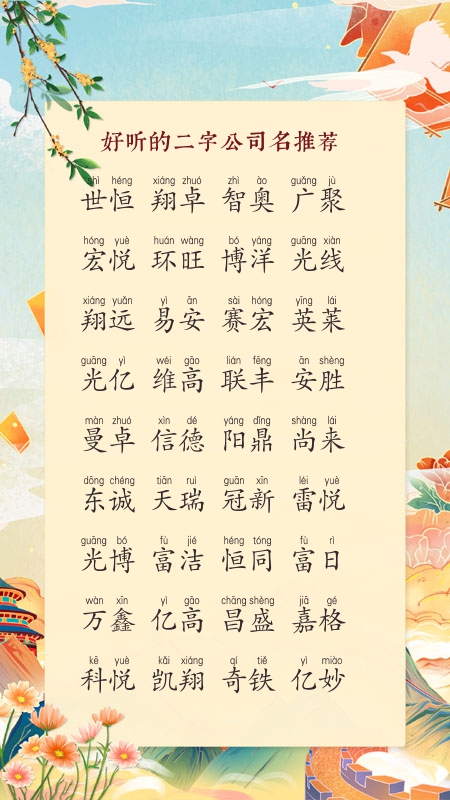 好听的二字公司名推荐
shì héng xiáng zhuó zhì ào guǎng jù
世恒 翔卓 智奥 广聚
hóng yuè huán wàng bó yáng guāng xiàn
宏悦 环旺 博洋 光线
xiáng yuǎn yì ān sài hóng yīng lái
翔远 易安 赛宏 英莱
guāng yì wéi gāo lián fēng ān shèng
光亿 维高 联丰 安胜
màn zhuó xìn dé yáng dǐng shàng lái
曼卓 信德 阳鼎 尚来
dōng chéng tiān ruì guān xīn léi yuè
东诚 天瑞 冠新 雷悦
guāng bó fù jié héng tóng fù rì
光博 富洁 恒同 富日
wàn xīn yì gāo chāng shèng jiā gé
万鑫 亿高 昌盛 嘉格
kē yuè kǎi xiáng qí tiě yì miào
科悦 凯翔 奇铁 亿妙